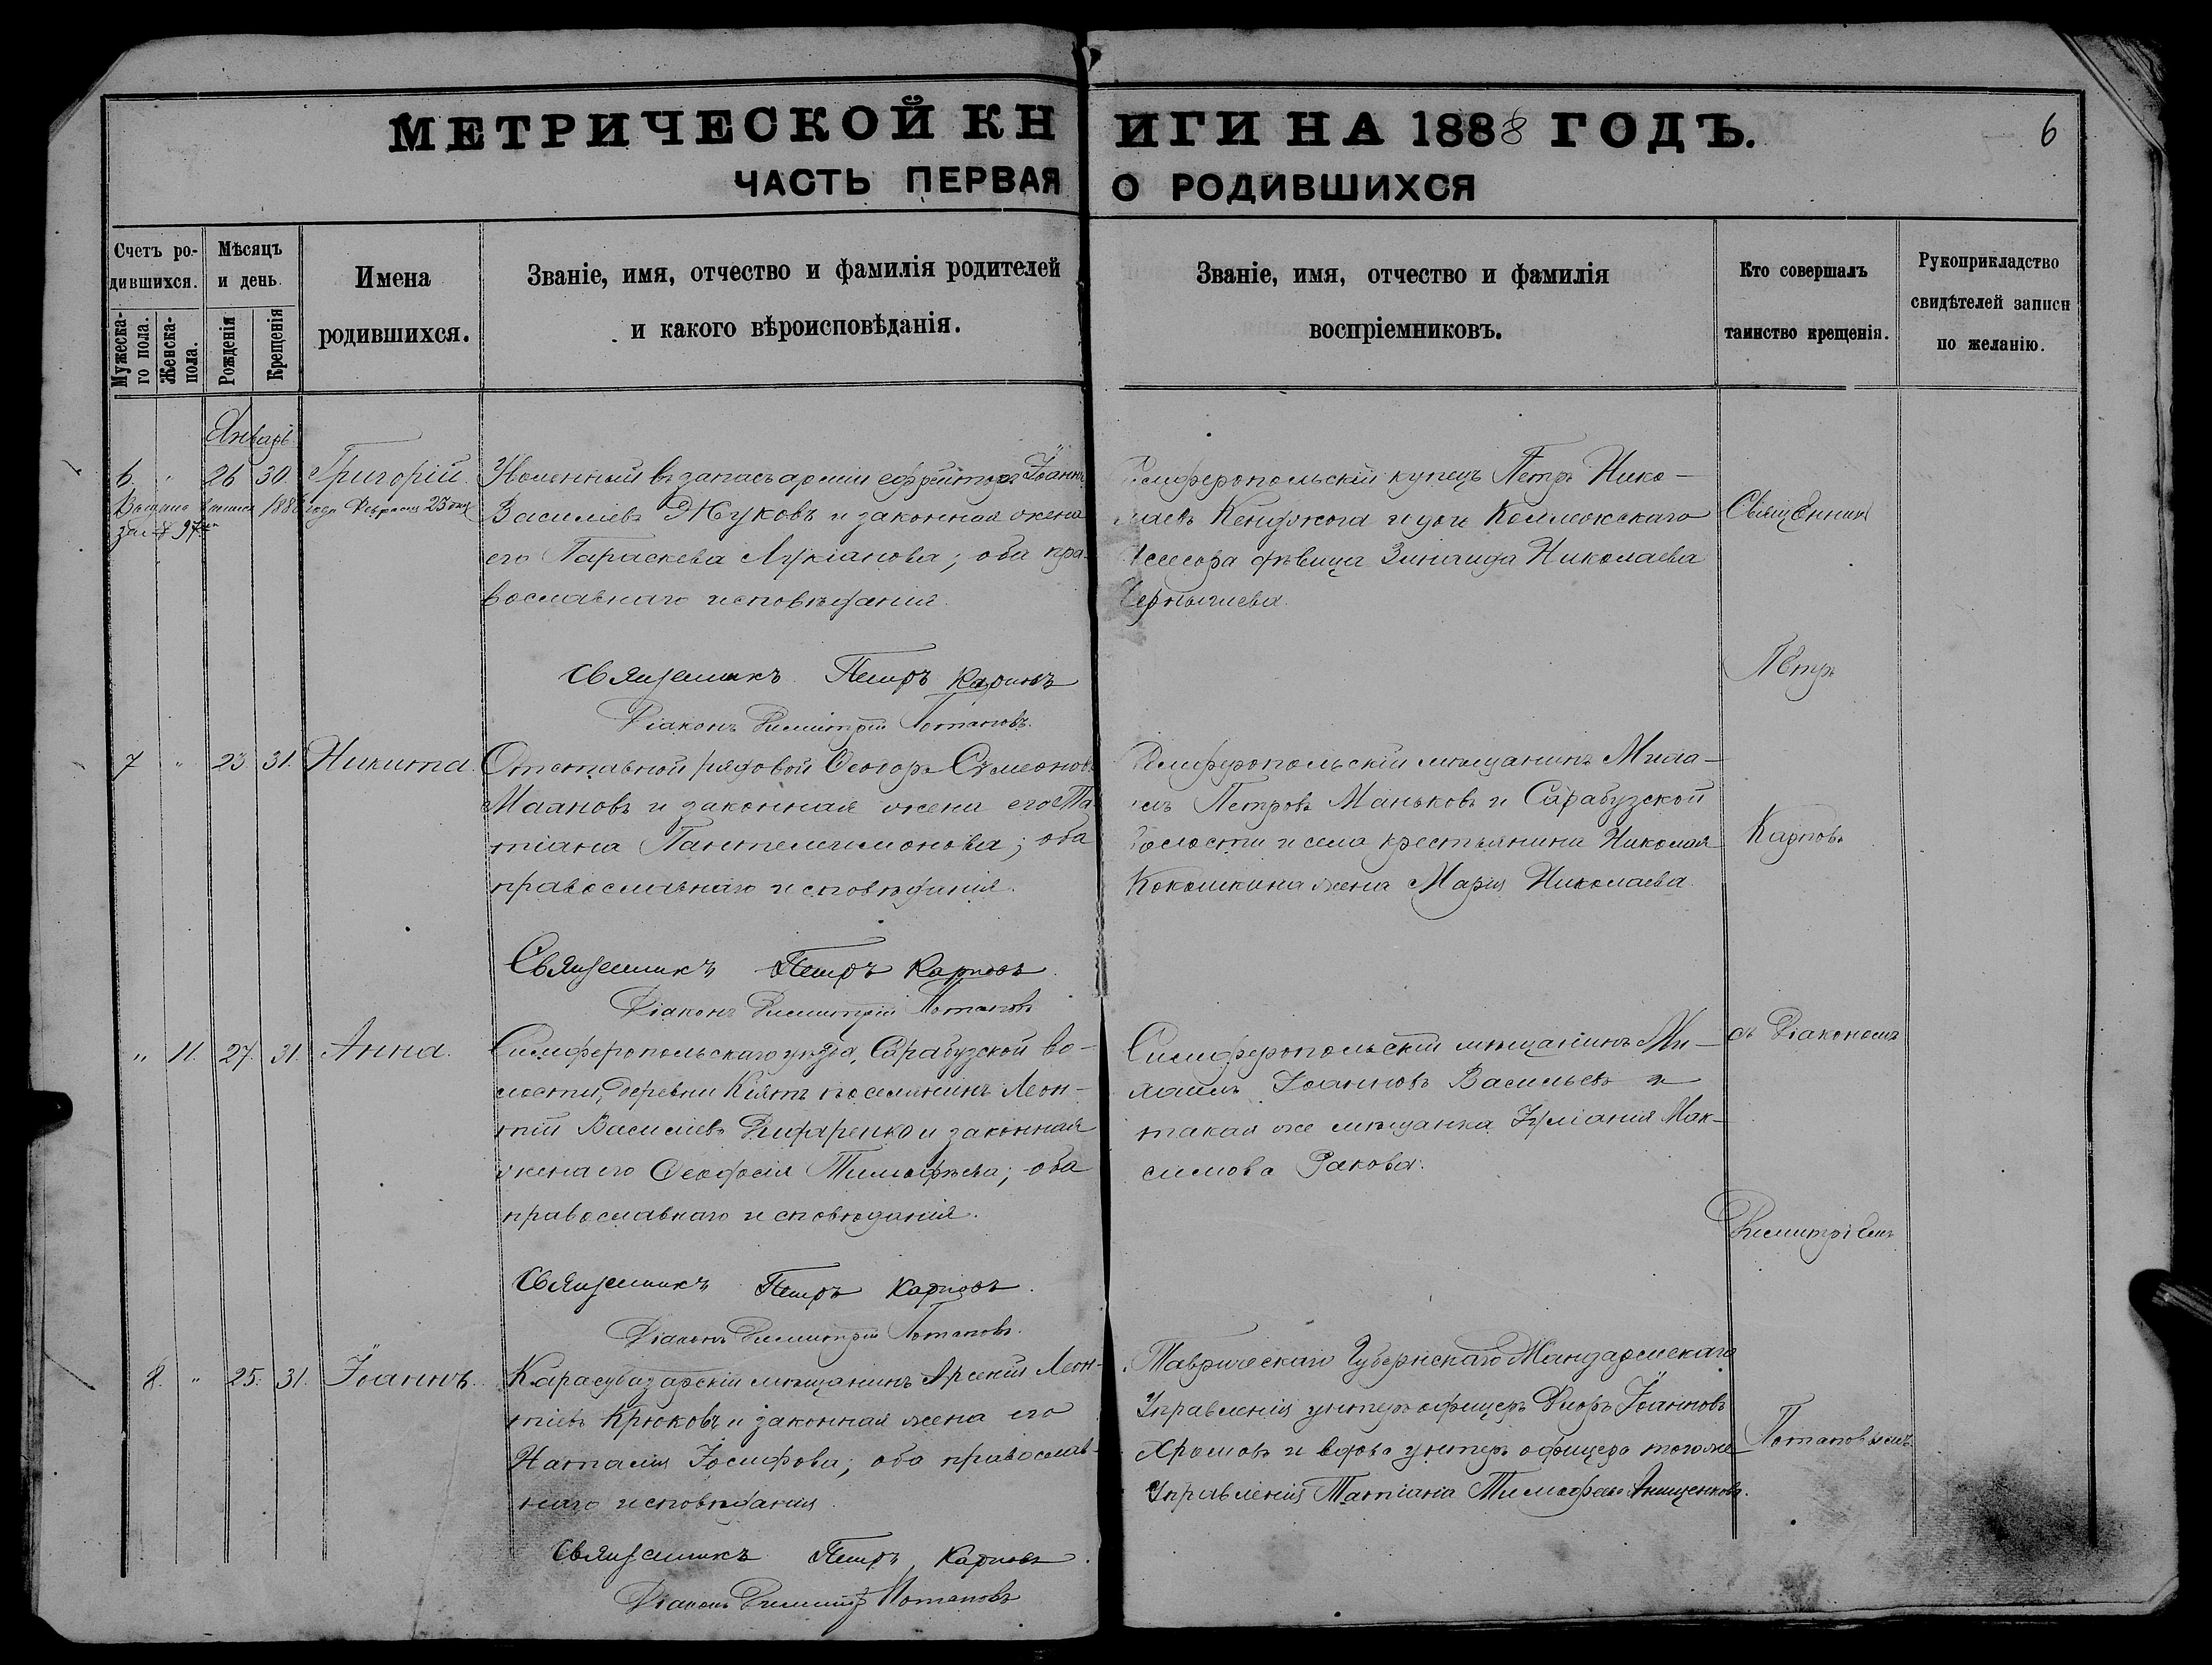 МЕТРИЧЕСКОЙ КНИГИ НА 1888 ГОДЪ.
6
ЧАСТЬ ПЕРВАЯ О РОДИВШИХСЯ
Счетъ ро-
дившихся.
Мужеска-
го пола.
Женска-
пола.
Мѣсяцъ
и день
Рожденія
Крещенія
Имена
родившихся.
Званіе, имя, отчество и фамилія родителей
и какого вѣроисповѣданія.
Званіе, имя, отчество и фамилія
воспріемниковъ.
Кто совершалъ
таинство крещенія.
Рукоприкладство
свидѣтелей записи
по желанію.
Январь
6. " 26 30. Григорій.
года Февраля 25 дня
за № 97
въ запасъ арміи ефрейторъ Іоаннъ
Василіевъ Жуковъ и законная жена
его Параскева Лукіанова; оба пра-
вославнаго исповѣданія.
Священникъ Петръ Карповъ
Діаконъ Димитрій Потаповъ.
Симферопольскій купецъ Петръ Нико-
лаевъ и дочь Коллежскаго
Ассесора дѣвица Зинаида Николаева
7 " 23 31. Никита.
Отставной рядовой Ѳеодоръ Съмеоновъ
Маановъ и законная жена его Та-
тіана Пантелеимонова; оба
православнаго исповѣданія.
Священникъ Петръ Карповъ.
Діаконъ Димитрій Потаповъ
Симферопольскій мѣщанинъ Миха-
илъ Петровъ Маньковъ и Сарабузской
волости и села крестьянина Николая
Кокошкина жена Марія Николаева.
" 11. 27. 31. Анна.
Симферопольскаго уѣзда, Сарабузской во-
лости, деревни Кіятъ поселянинъ Леон-
тій Василіевъ и законная
жена его Ѳеодосія Тимоѳѣева; оба
православнаго исповѣданія.
Священникъ Петръ Карповъ.
Діаконъ Димитрій Потаповъ.
Симферопольскій мѣщанинъ Ми-
хаилъ Іоанновъ Васильевъ и
такая же мѣщанка Іуліанія Мак-
симова Ракова.
8. " 25. 31. Іоаннъ.
Карасубазарскій мѣщанинъ Арсеній Леон-
тіевъ Крюковъ и законная жена его
Наталія Іосифова; оба православ-
наго исповѣданія.
Священникъ Петръ Карповъ.
Діаконъ Димитрій Потаповъ
Таврическаго Губернскаго Жандармскаго
Управленія унтеръ офицеръ Іоанновъ
Хромовъ и вдова унтеръ офицера тогоже
Управленія Татіана Тимофеева Анищенкова.
Священникъ
Петръ
Карповъ
съ Діакономъ
Димитріемъ
Потаповымъ.